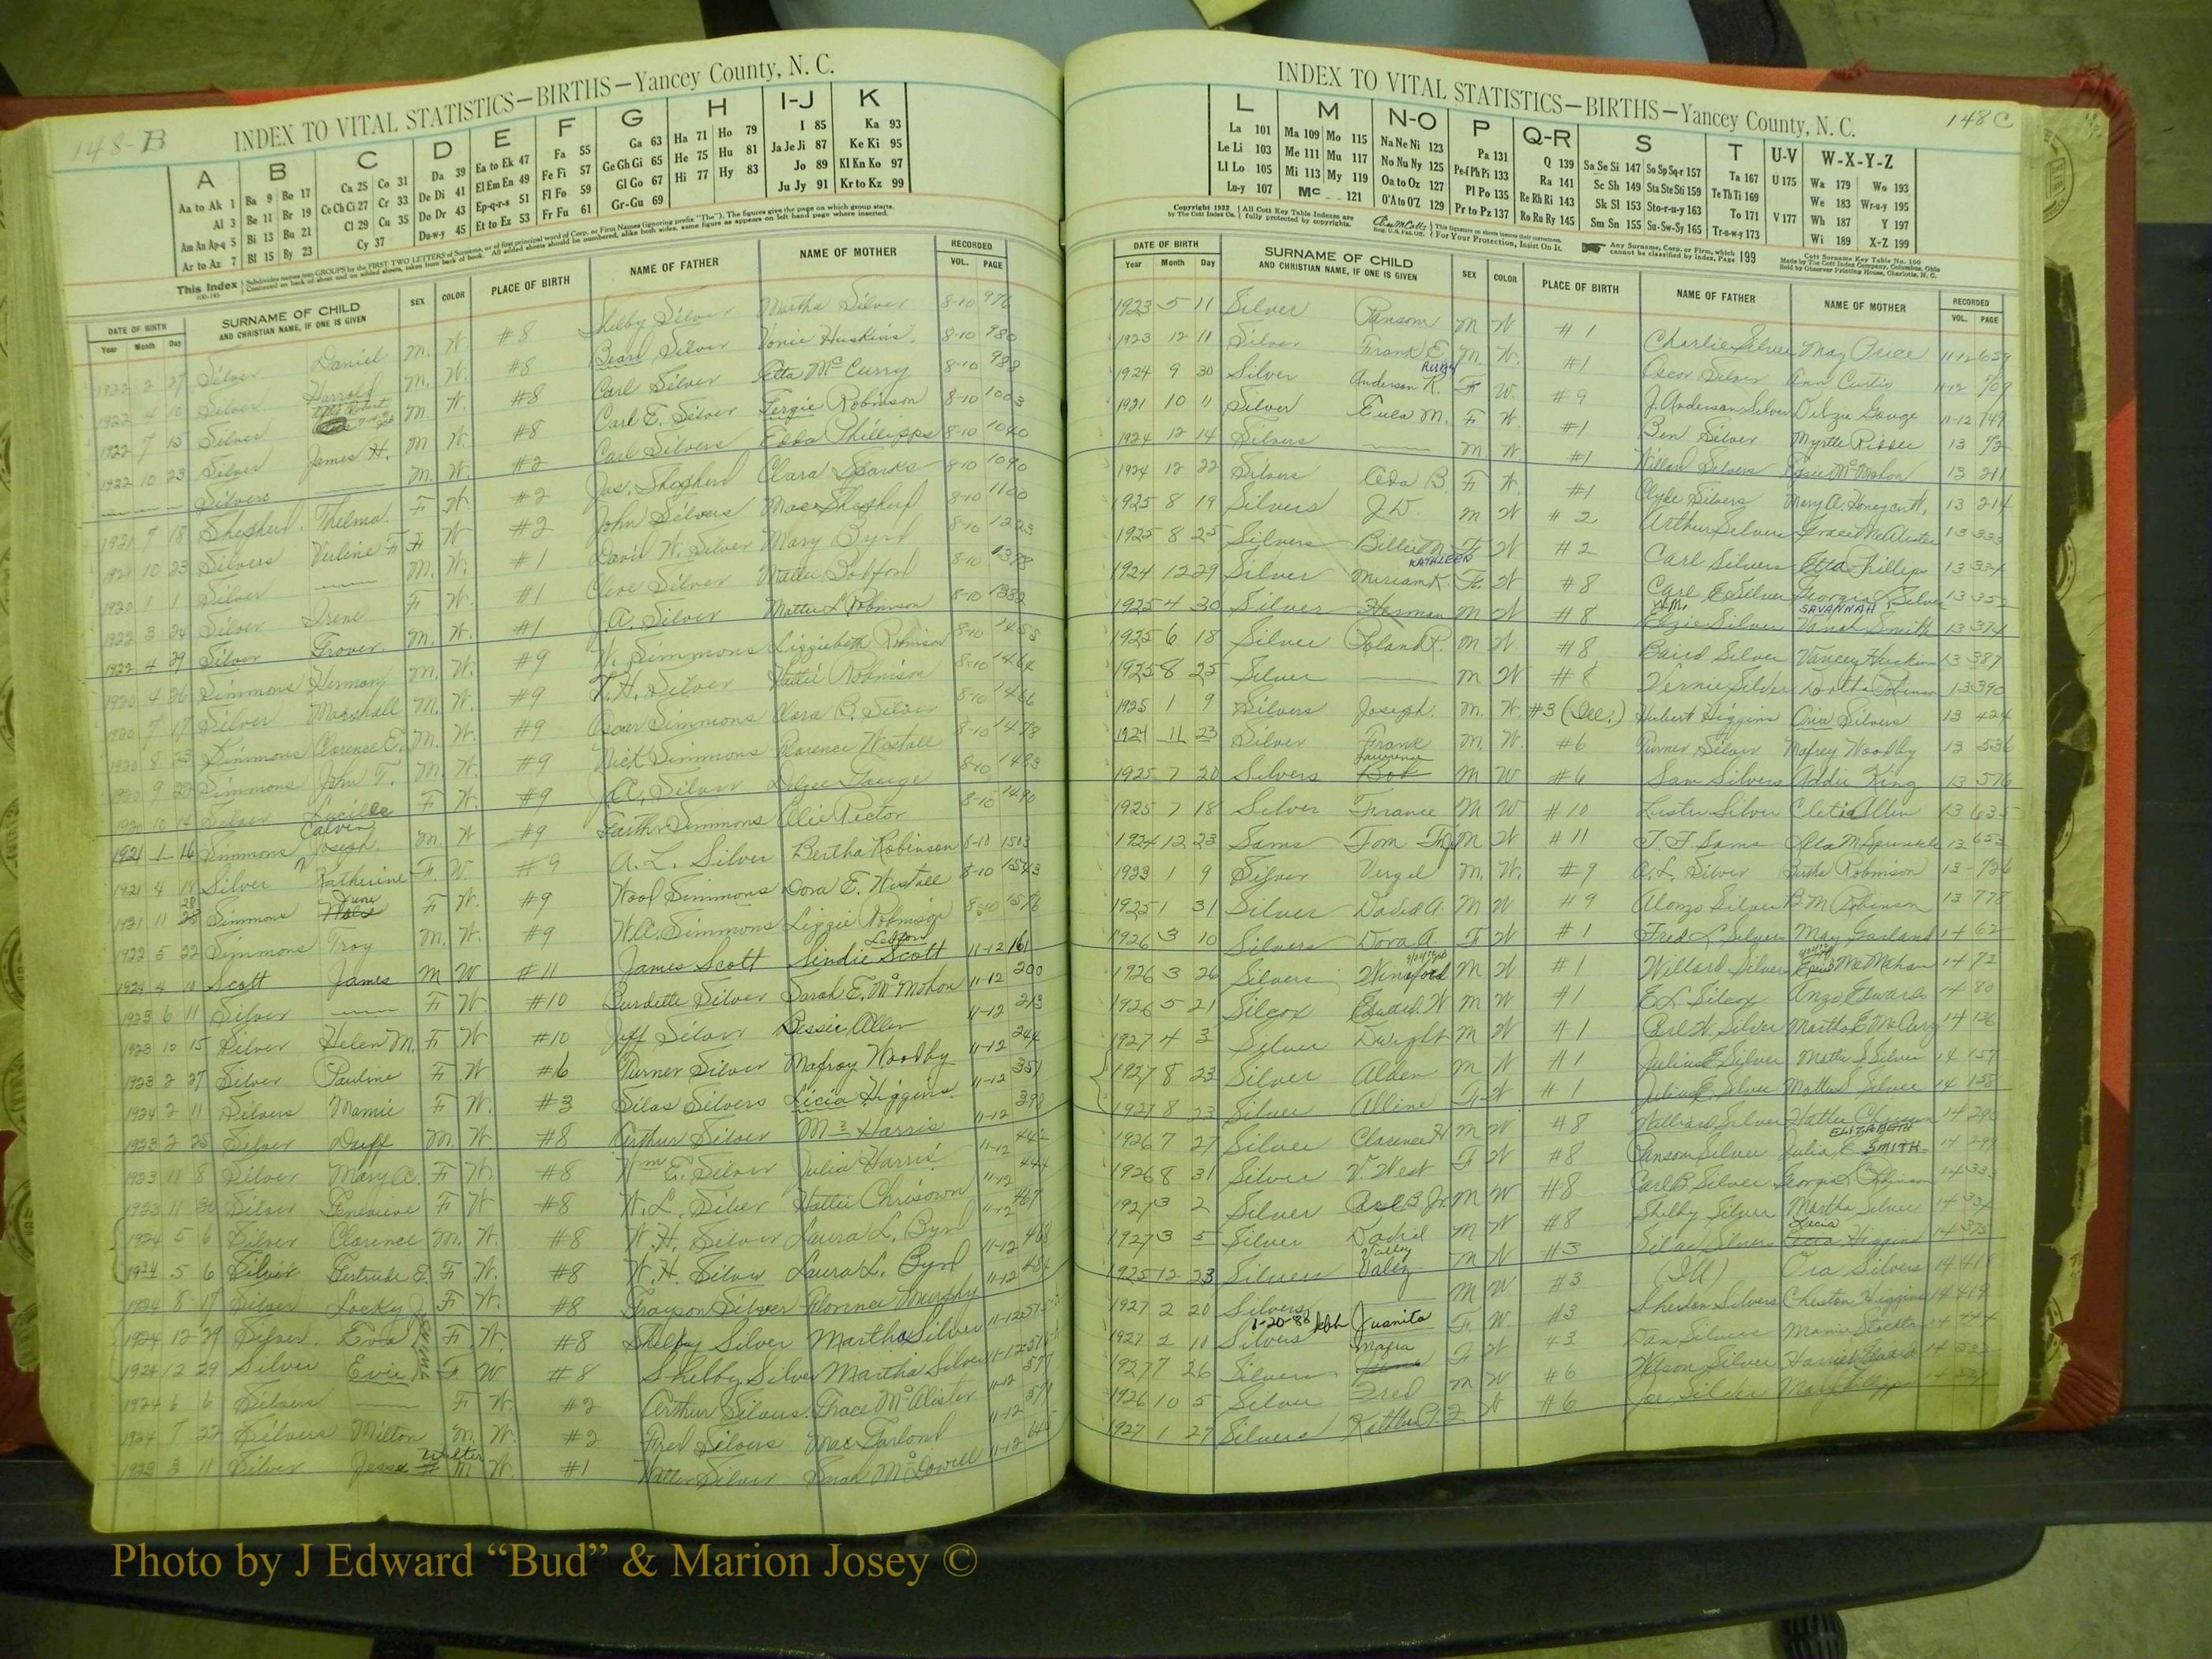 148-B
INDEX TO VITAL STATISTICS—BIRTHS—Yancey County, N. C.
A B C D E F G H I-J K
Aa to Ak 1 Ba 9 Bo 17 Ca 25 Co 31 Da 39 Ea to Ek 47 Fa 55 Ga 63 Ha 71 Ho 79 I 85 Ka 93
Al 3 Be 11 Br 19 Ce Ch Ci 27 Cr 33 De Di 41 El Em En 49 Fe Fi 57 Ge Gh Gi 65 He 75 Hu 81 Ja Je Ji 87 Ke Ki 95
Am An Ap-q 5 Bi 13 Bu 21 Cl 29 Cu 35 Do Dr 43 Ep-q-r-s 51 Fl Fo 59 Gl Go 67 Hi 77 Hy 83 Jo 89 Kl Kn Ko 97
Ar to Az 7 Bl 15 By 23 Cy 37 Du-w-y 45 Et to Ez 53 Fr Fu 61 Gr-Gu 69 Ju Jy 91 Kr to Kz 99
This Index
DATE OF BIRTH SURNAME OF CHILD AND CHRISTIAN NAME, IF ONE IS GIVEN SEX COLOR PLACE OF BIRTH NAME OF FATHER NAME OF MOTHER RECORDED
Year Month Day VOL. PAGE
1922 2 27 Silver Daniel M. W. #8 Shelby Silver Martha Silver 8-10 976
1922 4 10 Silver Harrold M. W. #8 Beard Silver Vonie Huskins 8-10 980
1922 7 15 Silver M. W. #8 Carl Silver Etta McCurry 8-10 988
1922 10 23 Silver James H. M W. #8 Carl E. Silver Robinson 8-10 1003
Silvers M. W. #2 Carl Silvers Edda Phillipps 8-10 1040
1921 7 18 Shepherd Thelma F W. #2 Jas. Shepherd Clara Sparks 8-10 1090
1921 10 23 Silvers Verline F F W #2 John Silvers Mae Shepherd 8-10 1100
1920 1 1 Silver M. W. #1 David W. Silver Mary Byrd 8-10
1922 3 24 Silver Irene F W. #1 Cleve Silver Mattie 8-10 1378
1922 4 29 Silver Grover M. W. #1 J.A. Silver Mattie L Robinson 8-10 1382
1920 4 26 Simmons Herman M. W. #9 W. Simmons Lizziebeth Robinson 8-10 1455
1920 7 17 Silver Marshall M. W. #9 W.H. Silver Hattie Robinson 8-10 1464
1920 8 23 Simmons Clarence E. M. W. #9 Oscar Simmons Clara B. Silver 8-10 1466
1920 9 22 Simmons John T. M. W. #9 Dick Simmons Florence Westall 8-10 1478
1920 10 14 Silver Lucille F W. #9 J.A. Silver Gouge 8-10 1483
1921 1 16 Simmons Calvin Joseph M. W #9 Simmons Olie Rector 8-10 1490
1921 4 18 Silver Katherine F. W. #9 A. L. Silver Bertha Robinson 8-10 1513
1921 11 28 Simmons June F W. #9 Wool Simmons Dora E. Westall 8-10 1543
1922 5 22 Simmons Troy M. W. #9 W.A. Simmons Lizzie Robinson 8-10 1576
1924 4 11 Scott James M W #11 James Scott Lindie Scott 11-12 161
1923 6 11 Silver F W. #10 Burdette Silver Sarah E. McMahon 11-12 200
1923 10 15 Silver Helen M. F W #10 Jeff Silver Bessie Allen 11-12 213
1923 2 27 Silver Pauline F W #6 Turner Silver Mafroy Woodby 11-12 244
1924 2 11 Silvers Mamie F W. #3 Silas Silvers Licia Higgins 11-12 351
1923 2 25 Silver Duff M. W #8 Arthur Silver Harris 11-12 398
1923 11 8 Silver Mary A. F W. #8 Wm E. Silver Julia Harris 11-12 442
1923 11 30 Silver Genevieve F W #8 W. L. Silver Hattie Chrisown 11-12 444
1924 5 6 Silver Clarence M. W. #8 W. H. Silver Laura L. Byrd 11-12 467
1924 5 6 Silver Gertrude E. F W. #8 W. H. Silver Laura L. Byrd 11-12 468
1924 8 17 Silver Locky J. F W. #8 Grayson Silver Florence Murphy 11-12 484
1924 12 29 Silver Eva F. W. #8 Shelby Silver Martha Silver 11-12
1924 12 29 Silver Evie F W #8 Shelby Silver Martha Silver 11-12
1924 6 6 Silvers F W. #2 Arthur Silvers Grace McAlister 11-12
1924 7 22 Silvers Milton M. W. #2 Fred Silvers Mae Garland 11-12
1923 3 11 Silver Jesse Walter M W. #1 Walter Silver Sarah McDowell 11-12
148 C
INDEX TO VITAL STATISTICS—BIRTHS—Yancey County, N. C.
L M N-O P Q-R S T U-V W-X-Y-Z
La 101 Ma 109 Mo 115 Na Ne Ni 123 Pa 131 Q 139 Sa Se Si 147 So Sp Sq-r 157 Ta 167 U 175 Wa 179 Wo 193
Le Li 103 Me 111 Mu 117 No Nu Ny 125 Pe-f Ph Pi 133 Ra 141 Sc Sh 149 Sta Ste Sti 159 Te Th Ti 169 We 183 Wr-u-y 195
Ll Lo 105 Mi 113 My 119 Oa to Oz 127 Pl Po 135 Re Rh Ri 143 Sk Sl 153 Sto-r-u-y 163 To 171 V 177 Wh 187 Y 197
Lu-y 107 Mc 121 O'A to O'Z 129 Pr to Pz 137 Ro Ru Ry 145 Sm Sn 155 Su-Sw-Sy 165 Tr-u-w-y 173 Wi 189 X-Z 199
Copyright 1932 by The Cott Index Co. All Cott Key Table Indexes are fully protected by copyrights. For Your Protection, Insist On It. Any Surname, Corp. or Firm, which cannot be classified by Index, Page 199
Cott Surname Key Table No. 100 Made by The Cott Index Company, Columbus, Ohio Sold by Observer Printing House, Charlotte, N. C.
DATE OF BIRTH SURNAME OF CHILD AND CHRISTIAN NAME, IF ONE IS GIVEN SEX COLOR PLACE OF BIRTH NAME OF FATHER NAME OF MOTHER RECORDED
Year Month Day VOL. PAGE
1923 5 11 Silver Ransom M W #1 Charlie Silver May Price 11-12 659
1923 12 11 Silver Frank E. M. W. #1 Oscar Silver Ann Curtis 11-12 709
1924 9 30 Silver Anderson R. F W. #9 J. Anderson Silver Gouge 11-12 749
1921 10 11 Silver Eula M. F W. #1 Ben Silver Myrtle Riddle 13 72
1924 12 14 Silvers M W #1 Willard Silvers Essie McMahon 13 211
1924 12 22 Silvers Ada B. F W. #1 Clyde Silvers Mary A. Honeycutt 13 214
1925 8 19 Silvers J.D. M W #2 Arthur Silvers Grace McAlister 13 333
1925 8 25 Silvers Billie M. F W #2 Carl Silvers Etta Phillips 13 334
1924 12 29 Silver Miriam K. KATHLEEN F W #8 Carl E Silver Georgia Silver 13 352
1925 4 30 Silver Herman M W #8 Wm. Elzie Silver SAVANNAH Vanah Smith 13 374
1925 6 18 Silver Roland R. M W #8 Baird Silver Vancey Huskins 13 387
1925 8 25 Silver M W #8 Vernie Silver Robinson 13 390
1925 1 9 Silvers Joseph M. W. #3 (Ill.) Hubert Higgins Oria Silvers 13 424
1924 11 23 Silver Frank M. W. #6 Turner Silver Mafrey Woodby 13 536
1925 7 20 Silvers Lawrence M W #6 Sam Silvers Addie King 13 576
1925 7 18 Silver France M W #10 Lester Silver Cletia Allen 13 635
1924 12 23 Sams Tom M W #11 T. F. Sams 13 653
1923 1 9 Silver Vergel M. W. #9 A. L. Silver Bertha Robinson 13 726
1925 1 31 Silver David A. M W #9 Alonzo Silver B.M Robinson 13 778
1926 3 10 Silvers Dora A F W #1 Fred L Silvers May Garland 14 62
1926 3 26 Silvers Winsford M W #1 Willard Silver McMahan 14 72
1926 5 21 Silcox Edward W M W #1 E.L. Silcox Edwards 14 80
1927 4 3 Silver Dwight M W #1 Carl W. Silver Martha E McCurry 14 136
1927 8 23 Silver Alden M W #1 Julius E Silver Mattie L Silver 14 157
1927 8 23 Silver Alline F W #1 Julius E Silver Silver 14 158
1926 7 27 Silver Clarence H M W #8 Willard Silver Hattie 14 290
1926 8 31 Silver V. West F W #8 Ransom Silver Julia E. ELIZABETH SMITH 14 299
1927 3 2 Silver Carl B. Jr. M W #8 Carl B. Silver Georgia Robinson 14 333
1927 3 5 Silver David M W #8 Shelby Silver Martha Silver 14 334
1925 12 23 Silvers Valley M W #3 Silas Silvers Licia Higgins 14 375
1927 2 20 Silvers M W #3 (Ill) Ora Silvers 14 411
1927 2 10 Silvers 1-20-86 Juanita F W #3 Silvers Cheston Higgins 14 419
1927 7 26 Silvers F W #3 Dan Silvers Mamie Stockton 14 444
1926 10 5 Silver Fred M W #6 Wilson Silver 14
1927 1 27 Silvers F W #6 Joe Silver May Phillipps 14
Photo by J Edward “Bud” & Marion Josey ©